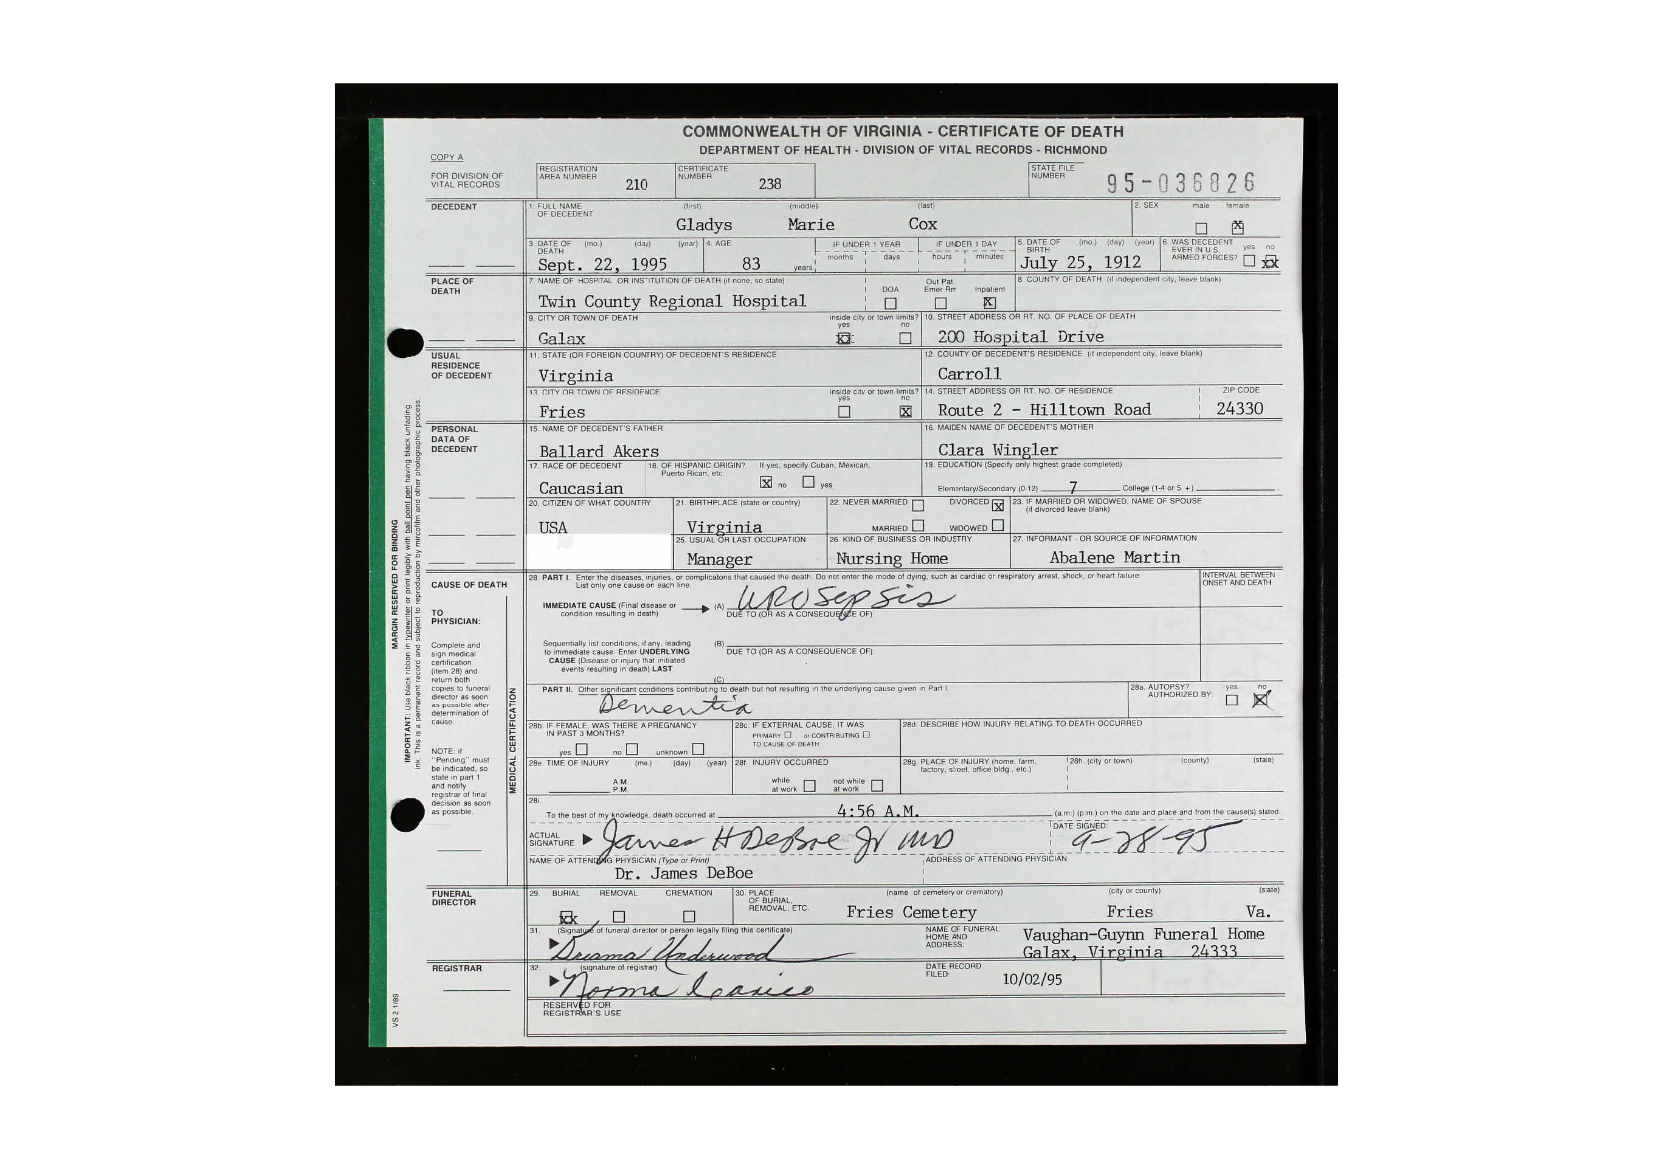 COMMONWEALTH OF VIRGINIA - CERTIFICATE OF DEATH
DEPARTMENT OF HEALTH - DIVISION OF VITAL RECORDS - RICHMOND
COPY A
FOR DIVISION OF VITAL RECORDS
REGISTRATION AREA NUMBER 210
CERTIFICATE NUMBER 238
STATE FILE NUMBER 95-036826
DECEDENT
1. FULL NAME OF DECEDENT (first) (middle) (last)
Gladys Marie Cox
2. SEX male female
3. DATE OF DEATH (mo.) (day) (year)
Sept. 22, 1995
4. AGE 83 years
IF UNDER 1 YEAR months days
IF UNDER 1 DAY hours minutes
5. DATE OF BIRTH (mo.) (day) (year)
July 25, 1912
6. WAS DECEDENT EVER IN U.S. ARMED FORCES? yes no
PLACE OF DEATH
7. NAME OF HOSPITAL OR INSTITUTION OF DEATH (if none, so state)
Twin County Regional Hospital
DOA Out Pat. Emer Rm Inpatient
8. COUNTY OF DEATH (if independent city, leave blank)
9. CITY OR TOWN OF DEATH
Galax
inside city or town limits? yes no
10. STREET ADDRESS OR RT. NO. OF PLACE OF DEATH
200 Hospital Drive
USUAL RESIDENCE OF DECEDENT
11. STATE (OR FOREIGN COUNTRY) OF DECEDENT'S RESIDENCE
Virginia
12. COUNTY OF DECEDENT'S RESIDENCE (if independent city, leave blank)
Carroll
13. CITY OR TOWN OF RESIDENCE
Fries
inside city or town limits? yes no
14. STREET ADDRESS OR RT. NO. OF RESIDENCE
Route 2 - Hilltown Road
ZIP CODE
24330
PERSONAL DATA OF DECEDENT
15. NAME OF DECEDENT'S FATHER
Ballard Akers
16. MAIDEN NAME OF DECEDENT'S MOTHER
Clara Wingler
17. RACE OF DECEDENT
Caucasian
18. OF HISPANIC ORIGIN? If yes, specify Cuban, Mexican, Puerto Rican, etc.
X no yes
19. EDUCATION (Specify only highest grade completed)
Elementary/Secondary (0-12) 7 College (1-4 or 5 +)
20. CITIZEN OF WHAT COUNTRY
USA
21. BIRTHPLACE (state or country)
Virginia
22. NEVER MARRIED DIVORCED X
MARRIED WIDOWED
23. IF MARRIED OR WIDOWED, NAME OF SPOUSE (if divorced leave blank)
25. USUAL OR LAST OCCUPATION
Manager
26. KIND OF BUSINESS OR INDUSTRY
Nursing Home
27. INFORMANT - OR SOURCE OF INFORMATION
Abalene Martin
CAUSE OF DEATH
28. PART I. Enter the diseases, injuries, or complicatons that caused the death. Do not enter the mode of dying, such as cardiac or respiratory arrest, shock, or heart failure.
List only one cause on each line.
INTERVAL BETWEEN ONSET AND DEATH
IMMEDIATE CAUSE (Final disease or condition resulting in death) (A) Urosepsis
DUE TO (OR AS A CONSEQUENCE OF):
Sequentially list conditions, if any, leading to immediate cause. Enter UNDERLYING CAUSE (Disease or injury that initiated events resulting in death) LAST
(B)
DUE TO (OR AS A CONSEQUENCE OF):
(C)
TO PHYSICIAN:
Complete and sign medical certification (item 28) and return both copies to funeral director as soon as possible after determination of cause.
NOTE: if "Pending" must be indicated, so state in part 1 and notify registrar of final decision as soon as possible.
MEDICAL CERTIFICATION
PART II. Other significant conditions contributing to death but not resulting in the underlying cause given in Part I.
Dementia
28a. AUTOPSY? AUTHORIZED BY: yes no
28b. IF FEMALE, WAS THERE A PREGNANCY IN PAST 3 MONTHS?
yes no unknown
28c. IF EXTERNAL CAUSE, IT WAS
PRIMARY or CONTRIBUTING
TO CAUSE OF DEATH
28d. DESCRIBE HOW INJURY RELATING TO DEATH OCCURRED
28e. TIME OF INJURY (mo.) (day) (year)
A.M.
P.M.
28f. INJURY OCCURRED
while at work not while at work
28g. PLACE OF INJURY (home, farm, factory, street, office bldg., etc.)
28h. (city or town) (county) (state)
28i.
To the best of my knowledge, death occurred at 4:56 A.M. (a.m.) (p.m.) on the date and place and from the cause(s) stated.
ACTUAL SIGNATURE James H DeBoe Jr MD
DATE SIGNED: 9-28-95
NAME OF ATTENDING PHYSICIAN (Type or Print)
Dr. James DeBoe
ADDRESS OF ATTENDING PHYSICIAN
FUNERAL DIRECTOR
29. BURIAL REMOVAL CREMATION
30. PLACE OF BURIAL, REMOVAL, ETC. (name of cemetery or crematory) (city or county) (state)
Fries Cemetery Fries Va.
31. (Signature of funeral director or person legally filing this certificate)
Underwood
NAME OF FUNERAL HOME AND ADDRESS:
Vaughan-Guynn Funeral Home
Galax, Virginia 24333
REGISTRAR
32. (signature of registrar)
Norma
DATE RECORD FILED: 10/02/95
RESERVED FOR REGISTRAR'S USE
VS 2 1/89
MARGIN RESERVED FOR BINDING
IMPORTANT: Use black ribbon in typewriter or print legibly with ball point pen having black unfading ink. This is a permanent record and subject to reproduction by microfilm and other photographic process.